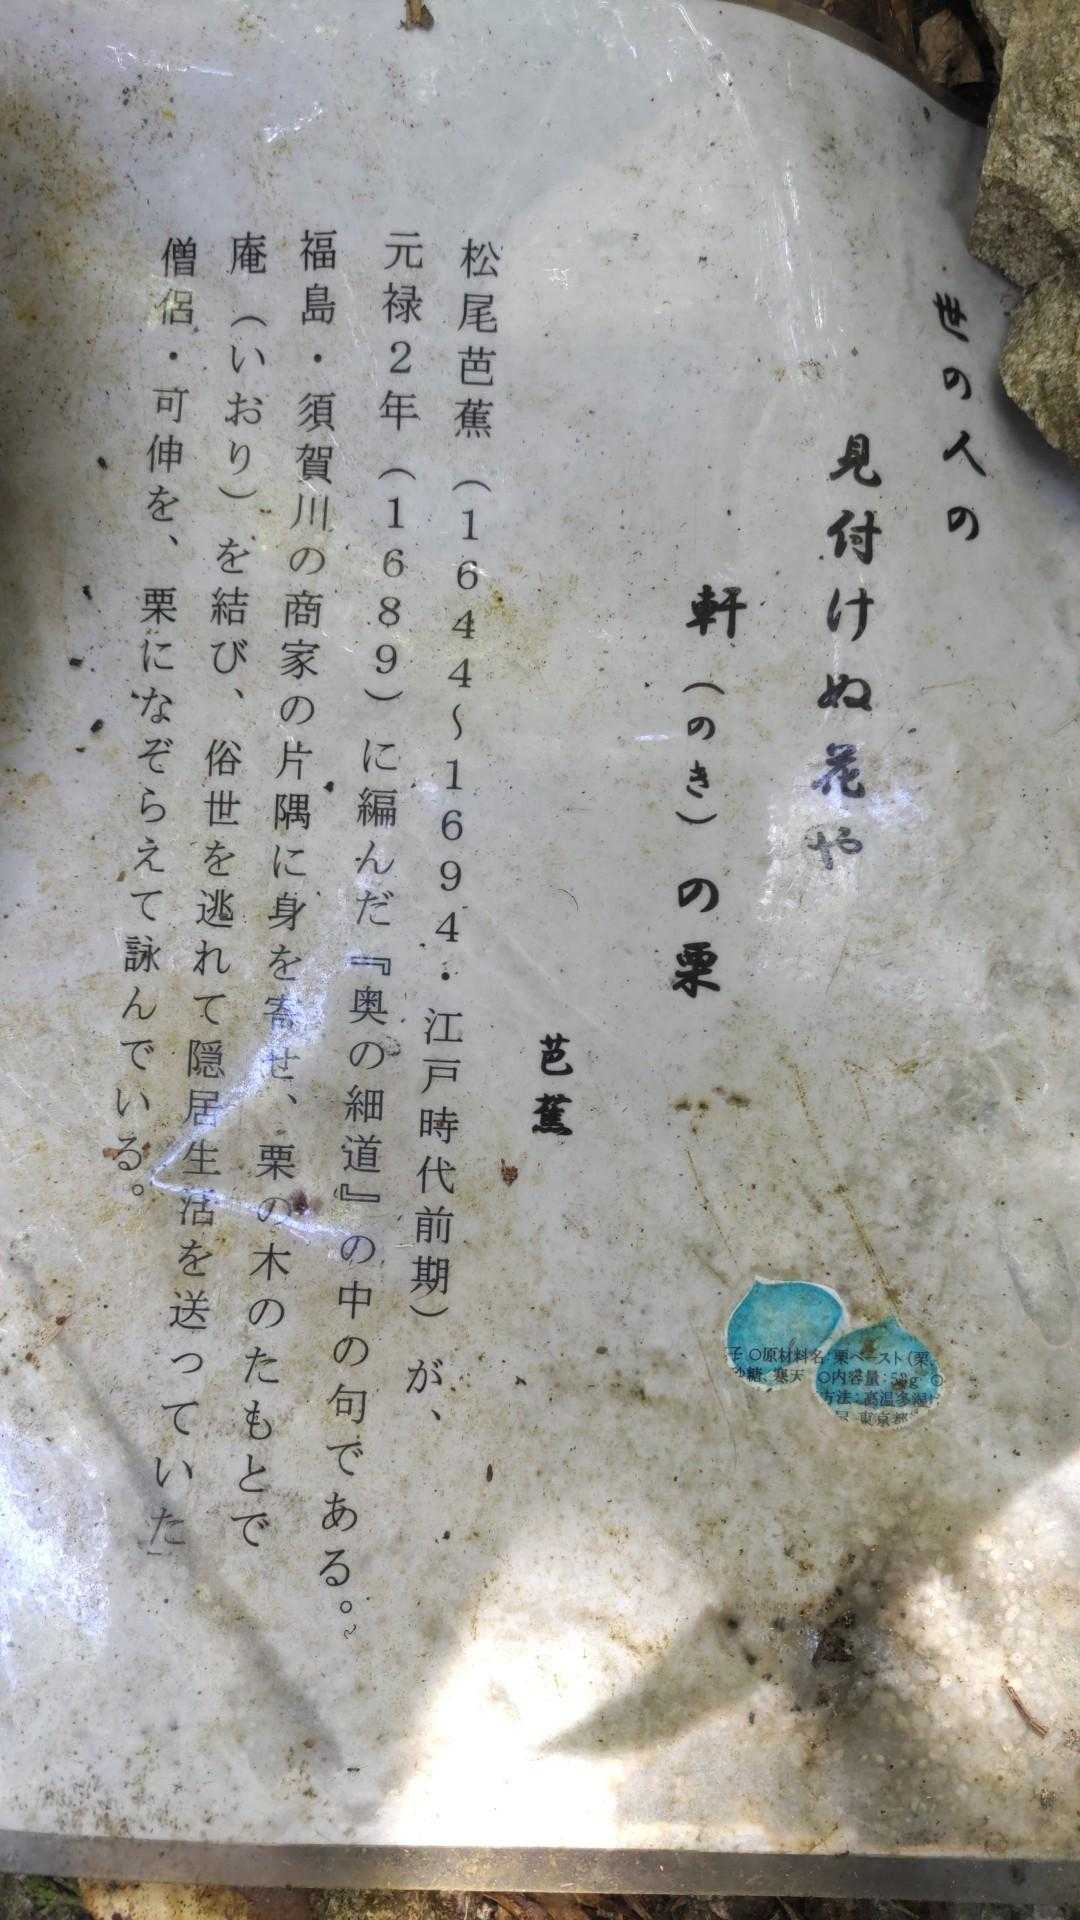 世の人の
見付けぬ花や
軒（のき）の栗
芭蕉
松尾芭蕉（１６４４～１６９４・江戸時代前期）が、
元禄２年（１６８９）に編んだ『奥の細道』の中の句である。
福島・須賀川の商家の片隅に身を寄せ、栗の木のたもとで
庵（いおり）を結び、俗世を逃れて隠居生活を送っていた
僧侶・可伸を、栗になぞらえて詠んでいる。
子 〇原材料名：栗ペースト（栗、
砂糖、寒天 〇内容量：
方法：高温多湿
東京都